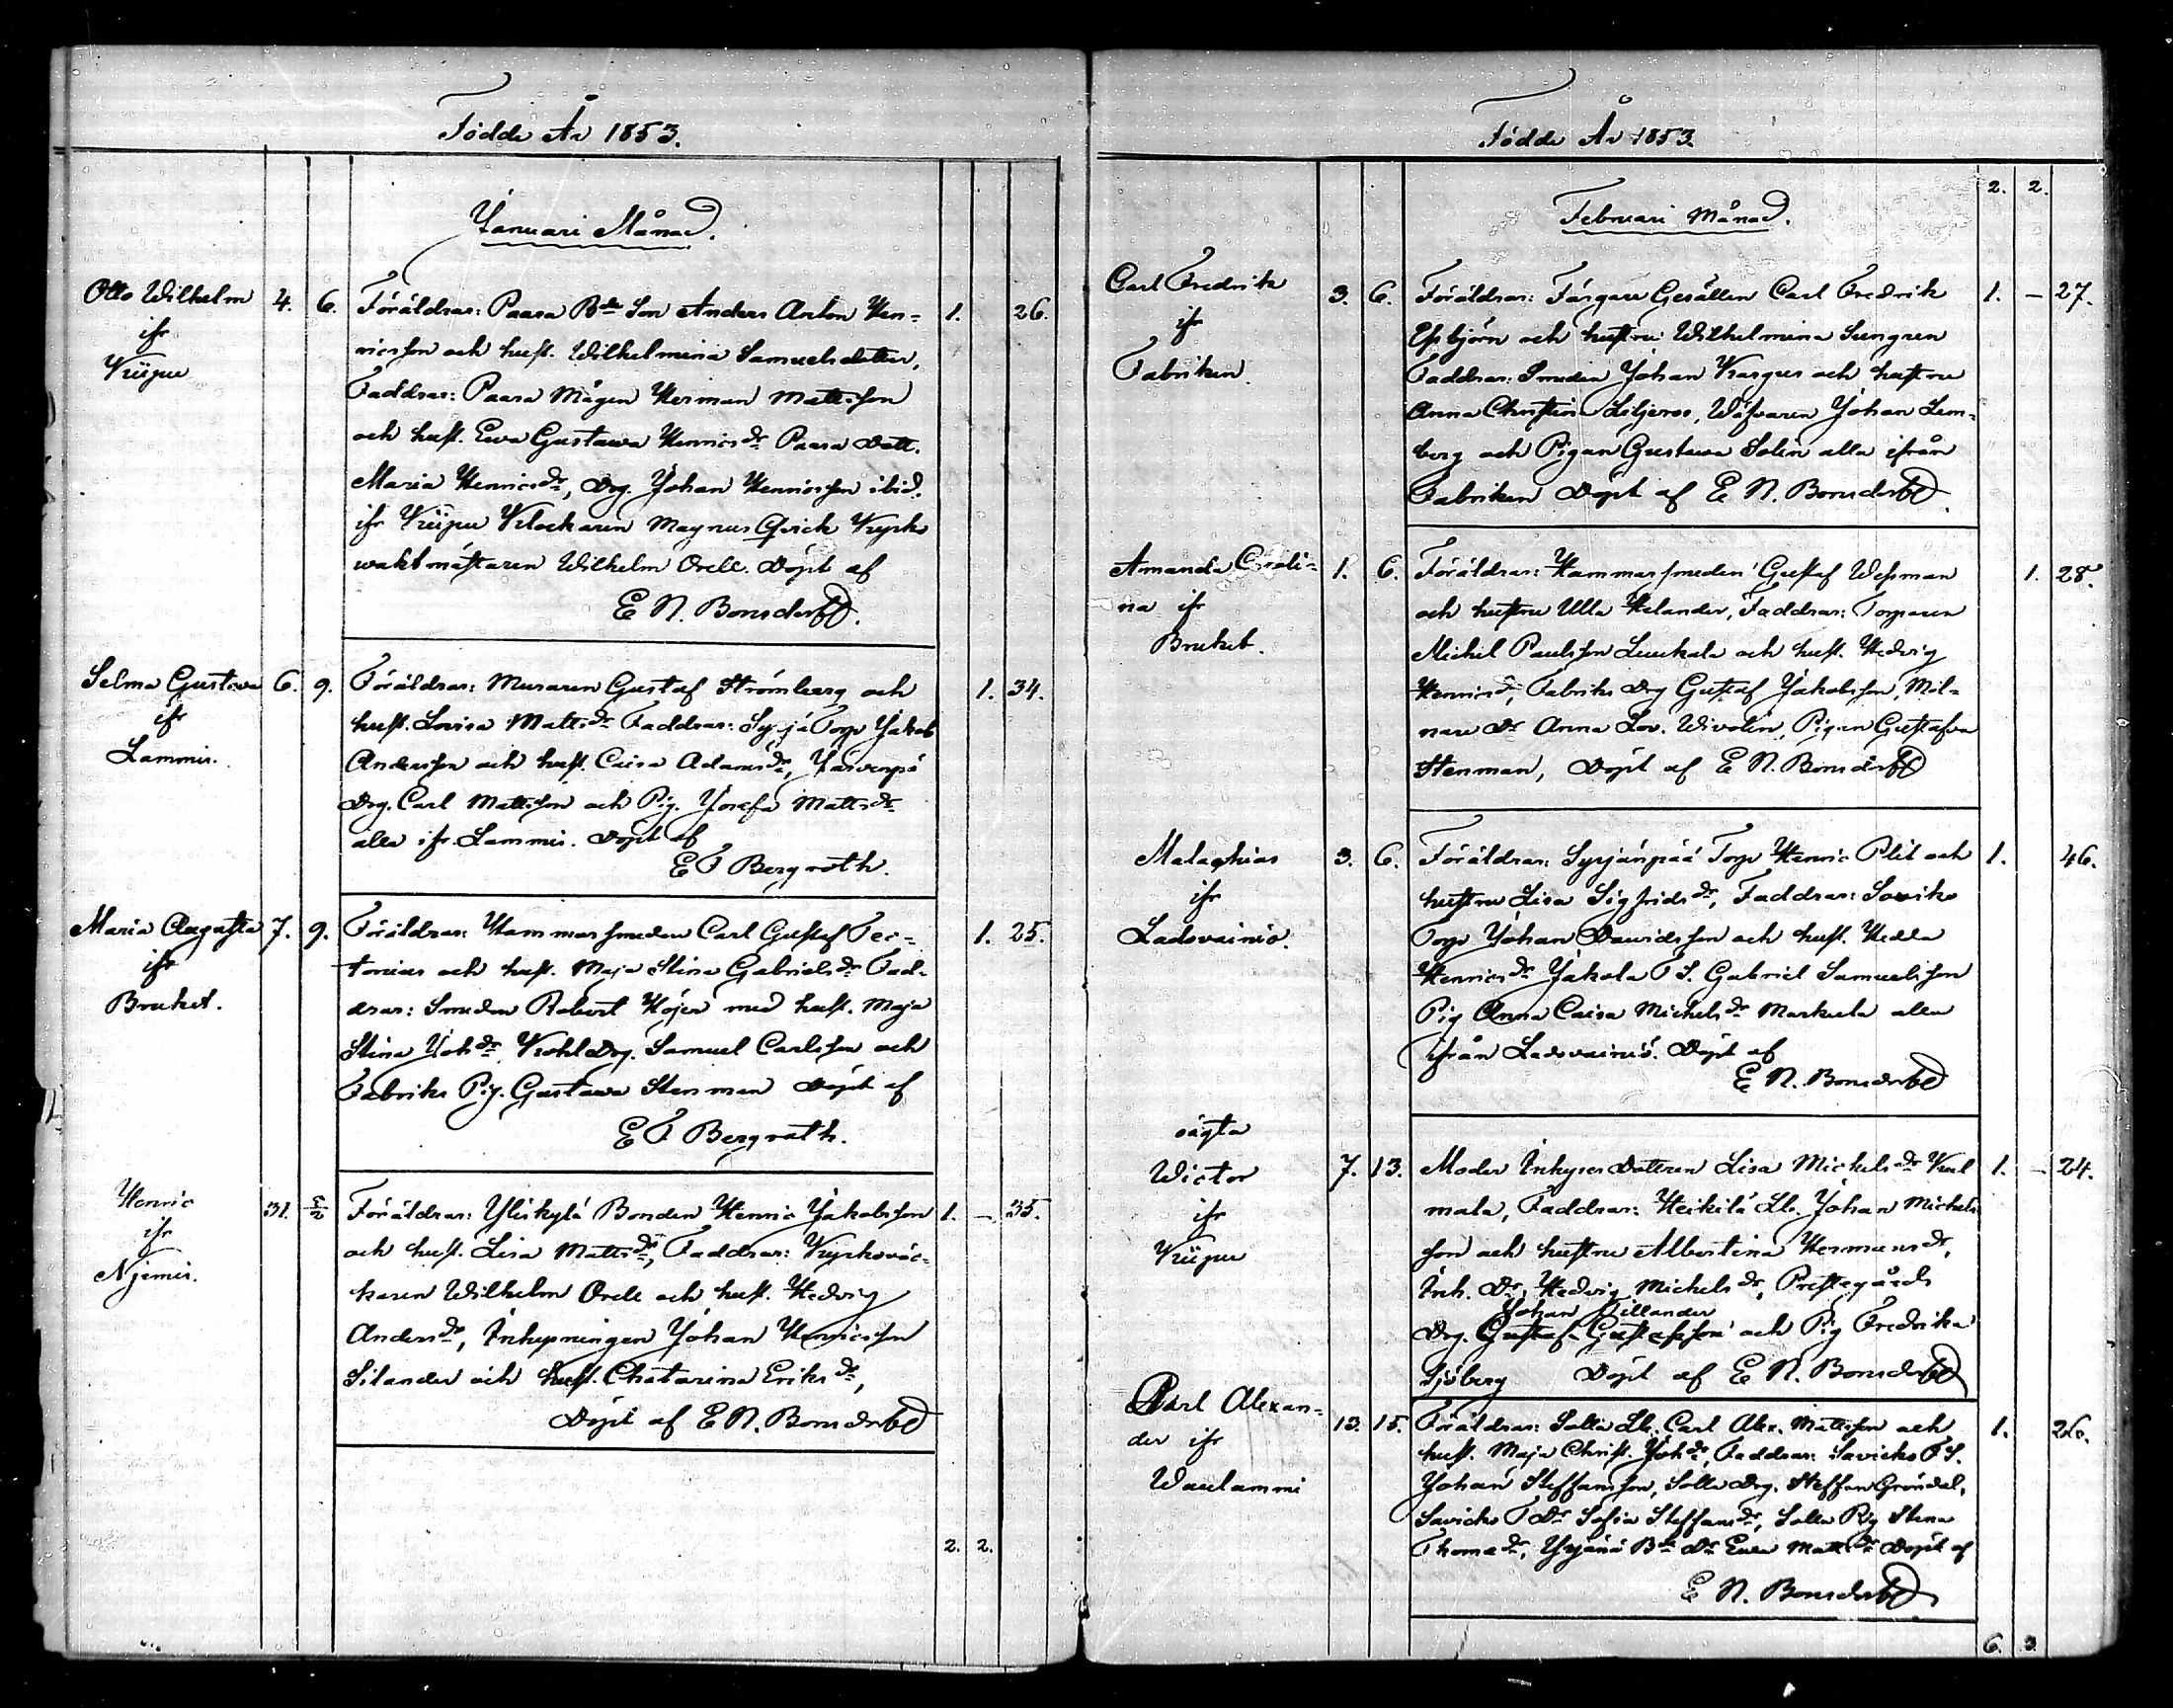 Födde År 1853.
Januari Månad.
Otto Wilhelm 4. 6. Föräldrar: Paara Bde Son Anders Anton Hen= 1. 26.
ifr ricsson och hust. Wilhelmina Samuelsdotter,
Faddrar: Paara Mågen Herman Mattsson
och hust. Ewa Gustawa Henricsdr Paara Dott.
Maria Henricsdr, Drg. Johan Henricsson ibid.
ifr Klockaren Magnus Qvick Kyrko
waktmästaren Wilhelm Orell. Döpt af
E N. Bonsdorff.
Selma Gustava 6. 9. Föräldrar: Muraren Gustaf Strömberg och 1. 34.
ifr hust. Lovisa Mattsdr Faddrar: Syrjä Torp Jakob
Lammis. Andersson och hust. Caisa Adamsdr, Järvenpä
Drg. Carl Mattsson och Pig. Josefa Mattsdr
alla ifr. Lammis. Döpt af
E F Bergroth.
Maria Augusta 7. 9. Föräldrar: Hammarsmeden Carl Gustaf Fec= 1. 25.
ifr torius och hust. Maja Stina Gabrielsdr Fad=
Bruket. drar: Smeden Robert Höjer med hust. Maja
Stina Johdr, KohlDrg. Samuel Carlsson och
Fabriks Pig. Gustawa Stenman Döpt af
E F Bergroth.
Henric 31. 6/2 Föräldrar: Yliskylä Bonden Henric Jakobsson 1. – 35.
ifr och hust. Lisa Mattsdr, Faddrar: Kyrkoväc=
Njemis. karen Wilhelm Orell och hust. Hedvig
Andersdr, Inhysningen Johan Henricsson
Silander och hust. Chatarina Eriksdr,
Döpt af E N. Bonsdorff
2. 2.
Födde År 1853.
2. 2.
Februari Månad.
Carl Fredrik 3. 6. Föräldrar: Färgare Gesällen Carl Fredrik 1. – 27.
ifr Essbjörn och hustru Wilhelmina Sungren
Fabriken. Faddrar: Smeden Johan Krogius och hustru
Anna Christina Liljeroo, Wäfvaren Johan Lem=
berg och Pigan Gustawa Solin alla ifrån
Fabriken Döpt af E N. Bonsdorff.
Amanda Caroli= 1. 6. Föräldrar: Hammarsmeden Gustaf Wessman 1. 28.
na ifr och hustru Ulla Helander, Faddrar: Torparen
Bruket. Michel Paulsson Luukala och hust. Hedvig
Henricsdr, Fabriks Drg Gustaf Jakobsson, Möl=
nare Dr Anna Lov. Wivolin, Pigan Gustafva
Stenman, Döpt af E N. Bonsdorff
Malachias 3. 6. Föräldrar: Syrjänpää Torp Henric Plit och 1. 46.
ifr hustru Lisa Sigfridsdr, Faddrar: Saviko
Ladsvainio. Torp Johan Davidsson och hust. Hedda
Henricsdr Jakola T S. Gabriel Samuelsson
Pig Anna Caisa Michelsdr Markula alla
ifrån Ladsvainiö. Döpt af
E N. Bonsdorff
oägta
Wictor 7. 13. Moder Inhyses Dotteren Lisa Michelsdr Kul 1. – 24.
ifr mala, Faddrar: Heikilä Lb. Johan Michels
son och hustru Albertina Hermansdr,
Inh. Dr, Hedvig Michelsdr, Prestegårds
Johan Gillander
Drg. Gustaf Gustafsson och Pig Fredrika
Sjöberg Döpt af E N. Bonsdorff
Carl Alexan= 13. 15. Föräldrar: Solla Lb. Carl Alex. Mattsson och 1. 26.
der ifr hust. Maja Christ. Johdr, Faddrar: Savicko T S.
Waulammi Johan Steffansson, Solla Drg. Steffan Gröndal,
Savicko T Dr Sofia Steffansdr, Solla Pig Stina
Thomasdr, Yrjänä Bde Dr Ewa Mattsdr Döpt af
E N. Bonsdorff
6. 3.